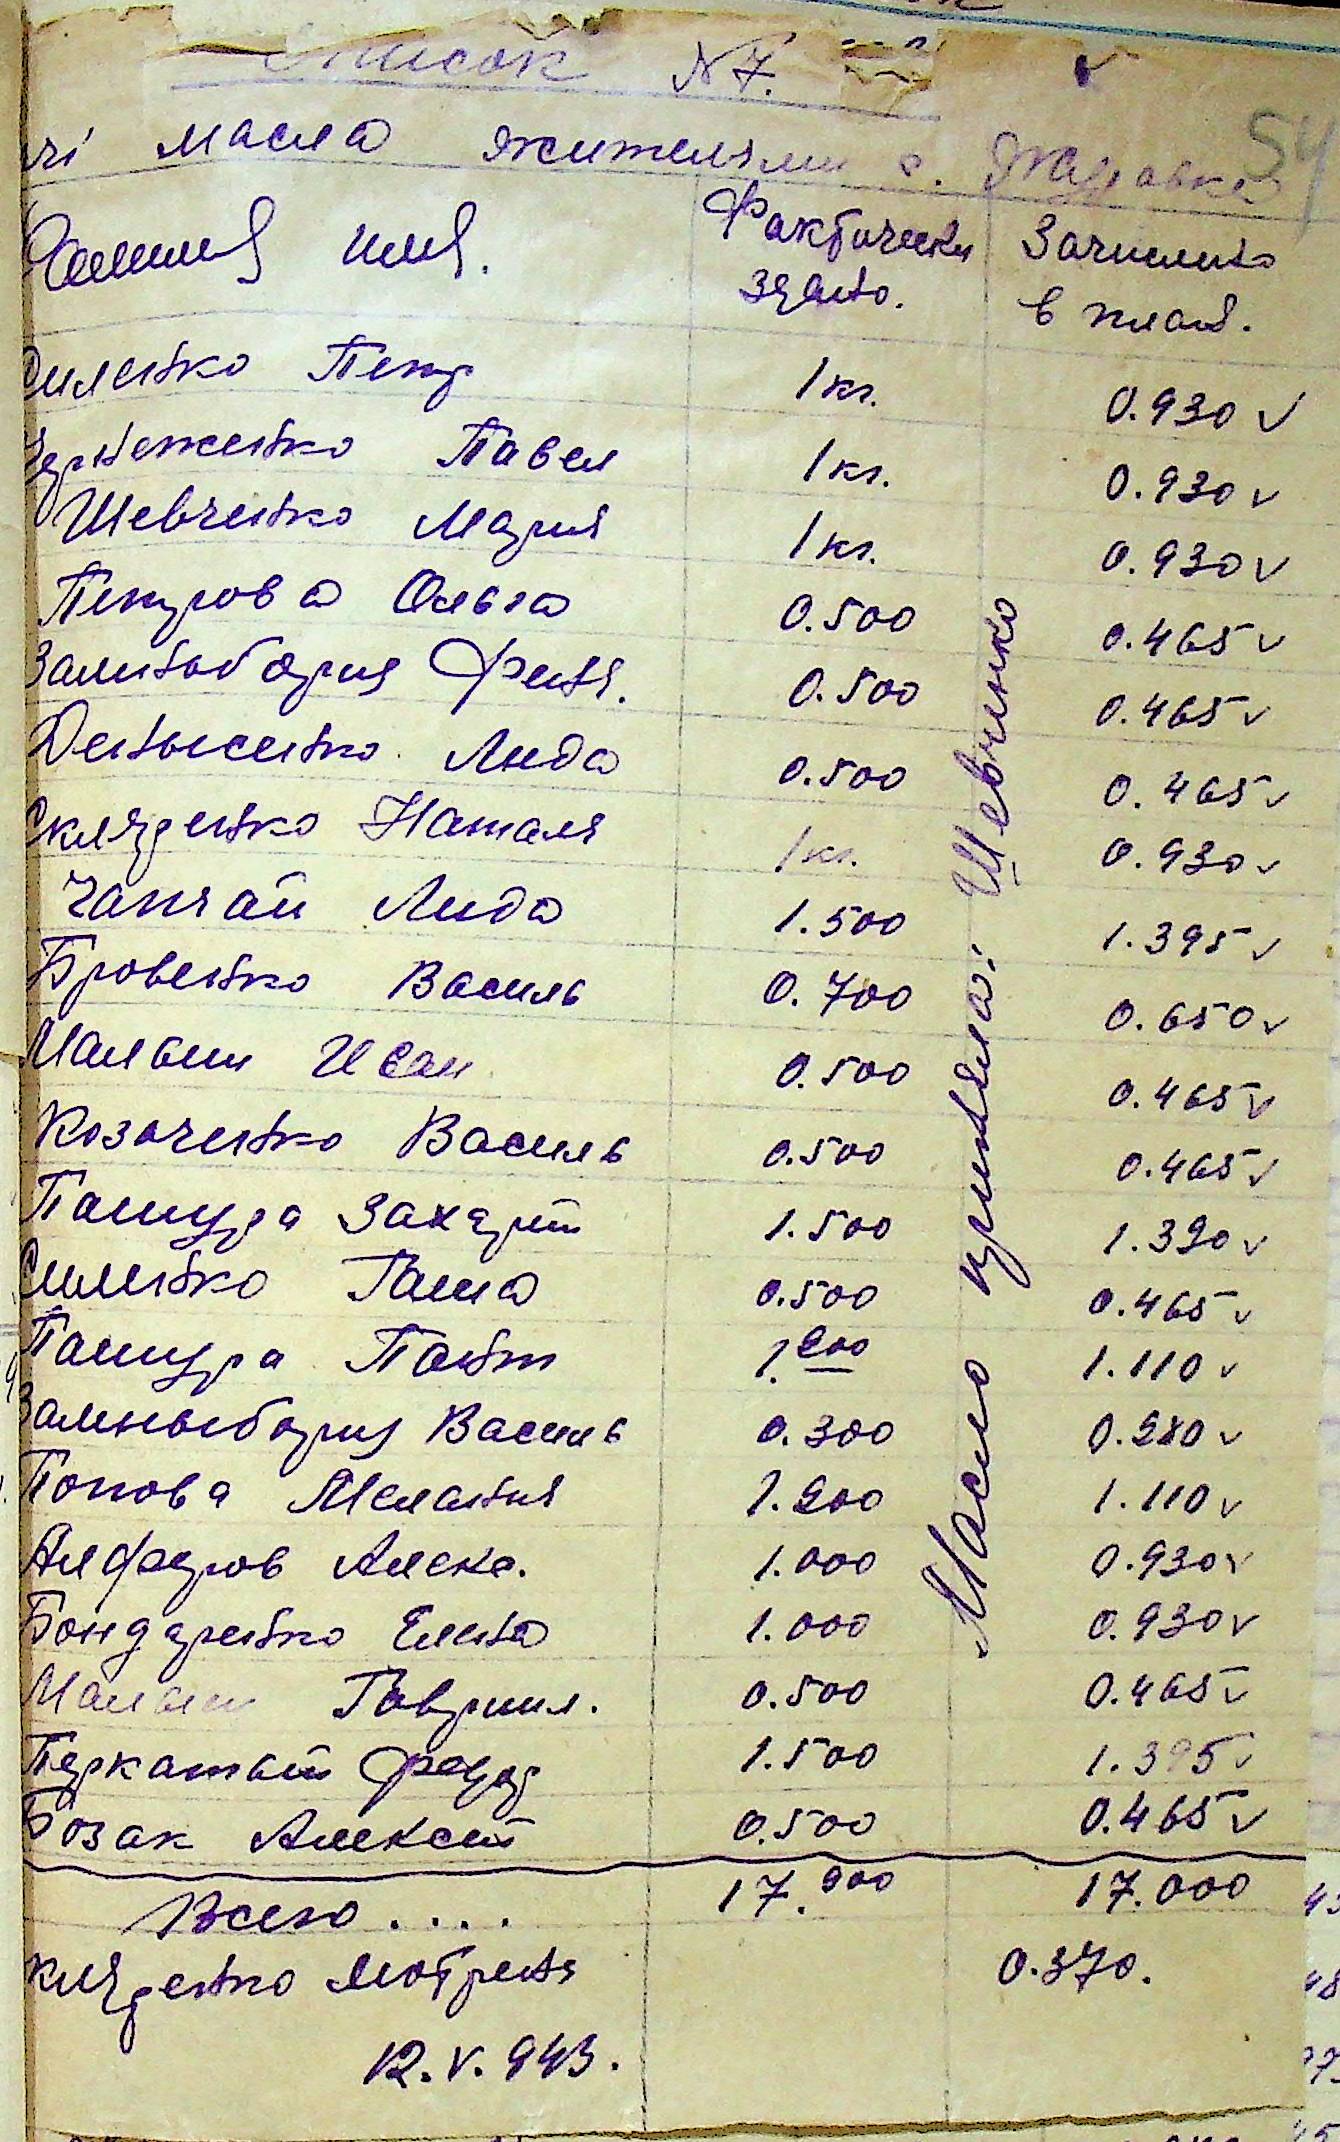 Список № 7.
54
масла жителями с.
Фамилия имя. Фактически здано. Зачислено в план.
Силенко Петр 1 кг. 0.930 v
Павел 1 кг. 0.930 v
Шевченко Мария 1 кг. 0.930 v
Петрова Ольга 0.500 0.465 v
Феня. 0.500 0.465 v
Денысенко Лида 0.500 0.465 v
Скляренко Наталя 1 кг. 0.930 v
Чапчай Лида 1.500 1.395 v
Бровенко Василь 0.700 0.650 v
Малыш Иван 0.500 0.465 v
Козаченко Василь 0.500 0.465 v
Пашура Захарий 1.500 1.390 v
Силенко Ганна 0.500 0.465 v
Пашура 1.200 1.110 v
Василь 0.300 0.280 v
Попова Мелания 1.200 1.110 v
Алферов Алекс. 1.000 0.930 v
Бондаренко Елена 1.000 0.930 v
Малыш Гавриил. 0.500 0.465 v
Федор 1.500 1.395 v
Бозак Алексей 0.500 0.465 v
Всего.... 17.900 17.000
кляренко Мотреня 0.370.
12.V.943.
Масло приняла: Шевченко